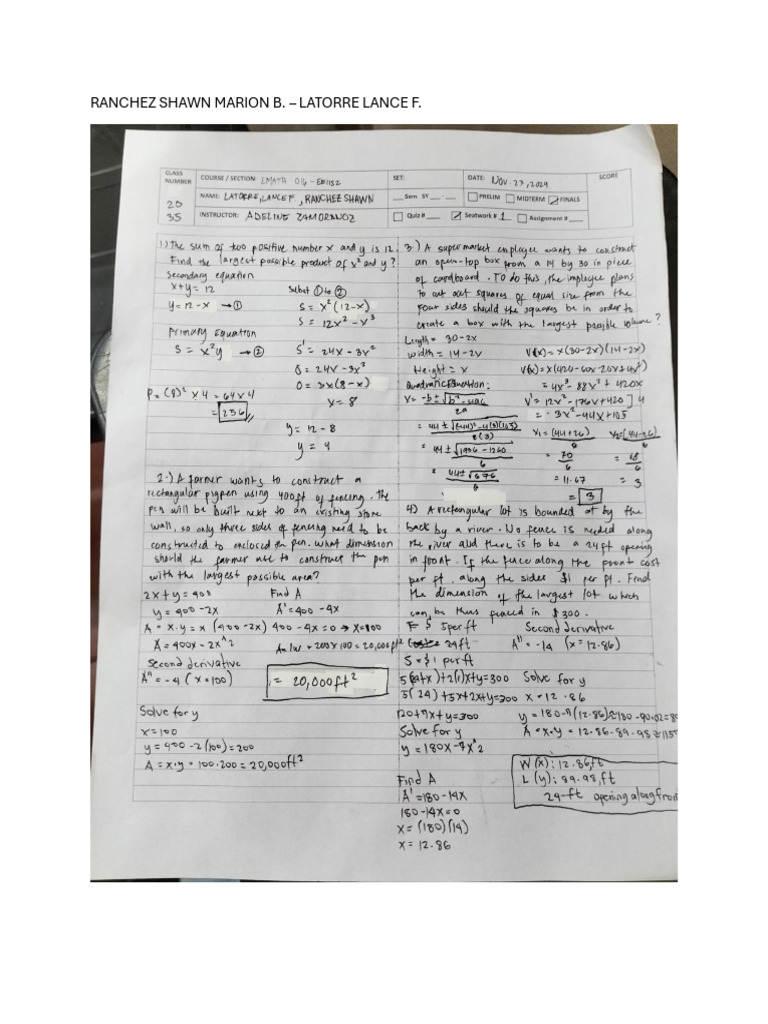 RANCHEZ SHAWN MARION B. – LATORRE LANCE F.
CLASS NUMBER
20
35
COURSE / SECTION: EMATH 016 - EE11S2
SET:
DATE: NOV. 27, 2024
SCORE
NAME: LATORRE, LANCE F. , RANCHEZ SHAWN
___Sem SY ___-___
PRELIM MIDTERM FINALS
INSTRUCTOR: ADELINE ZAMORANOZ
Quiz # ___ Seatwork # 1 Assignment # ___
1.) The sum of two positive number x and y is 12.
Find the largest possible product of x² and y?
Secondary equation
x+y = 12
y = 12 - x → ①
Primary Equation
S = x²y → ②
Subst ① to ②
S = x²(12-x)
S = 12x² - x³
S' = 24x - 3x²
0 = 24x - 3x²
0 = 3x(8-x)
x = 8
P = (8)² x 4 = 64 x 4
= 256
y = 12 - 8
y = 4
2.) A farmer wants to construct a
rectangular pigpen using 400ft of fencing. The
pen will be built next to an existing stone
wall, so only three sides of fencing need to be
constructed to enclosed the pen. What dimension
should the farmer use to construct the pen
with the largest possible area?
2x + y = 400
y = 400 - 2x
A = x.y = x (400 - 2x)
A = 400x - 2x^2
Find A
A' = 400 - 4x
400 - 4x = 0 → x = 100
= 200 x 100 = 20,000ft²
Second derivative
A" = -4 (x = 100)
= 20,000ft²
Solve for y
x = 100
y = 400 - 2(100) = 200
A = x.y = 100.200 = 20,000ft²
3.) A supermarket employee wants to construct
an open-top box from a 14 by 30 in piece
of cardboard. To do this, the employee plans
to cut out squares of equal size from the
four sides should the squares be in order to
create a box with the largest possible volume?
Length = 30 - 2x
width = 14 - 2x
Height = x
Quadratic Equation:
x = -b ± √b² - 4ac
2a
= 44 ± √(-44)² - 4(3)(105)
= 44 ± √1936 - 1260
6
= 44 ± √676
6
V(x) = x(30-2x)(14-2x)
V(x) = x(420 - 60x - 28x + 4x²)
= 4x³ - 88x² + 420x
V' = 12x² - 176x + 420 ] 4
= 3x² - 44x + 105
x₁ = (44+26)
6
= 70
6
= 11.67
x₂ = (44-26)
6
= 18
6
= 3
= 3
4) A rectangular lot is bounded at by the
back by a river. No fence is needed along
the river and there is to be a 24ft opening
in front. If the fence along the front cost
per ft, along the sides $1 per ft. Find
the dimension of the largest lot which
can be thus fenced in $300.
F = $ 5 per ft
24ft
S = $1 per ft
5(24+x)+2(1)x+y=300
5(24)+5x+2x+y=300
120+7x+y=300
Solve for y
y = 180x - 7x^2
Find A
A' = 180 - 14x
180 - 14x = 0
x = (180)(14)
x = 12.86
Second derivative
A" = -14 (x = 12.86)
Solve for y
x = 12.86
y = 180 - 7(12.86) ≈ 180 - 90.02 = 89
A = x.y = 12.86 . 89.98 ≈ 1157
W (x): 12.86,ft
L (y): 89.98,ft
24-ft opening along front